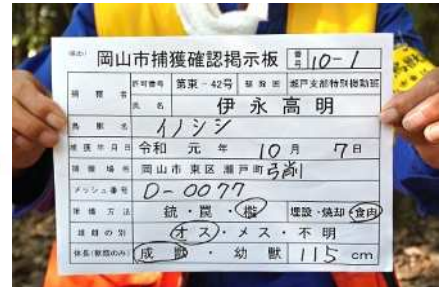 岡山市捕獲確認掲示板 番号 10-1
捕獲者 許可番号 第東-42号 猟友会 瀬戸支部特別機動班
氏名 伊永高明
鳥獣名 イノシシ
捕獲年月日 令和元年 10月 7日
捕獲場所 岡山市東区瀬戸町弓削
メッシュ番号 D-0077
捕獲方法 銃・罠・檻 埋設・焼却・食肉
雌雄の別 オス・メス・不明
体長(獣類のみ) 成獣・幼獣 115cm